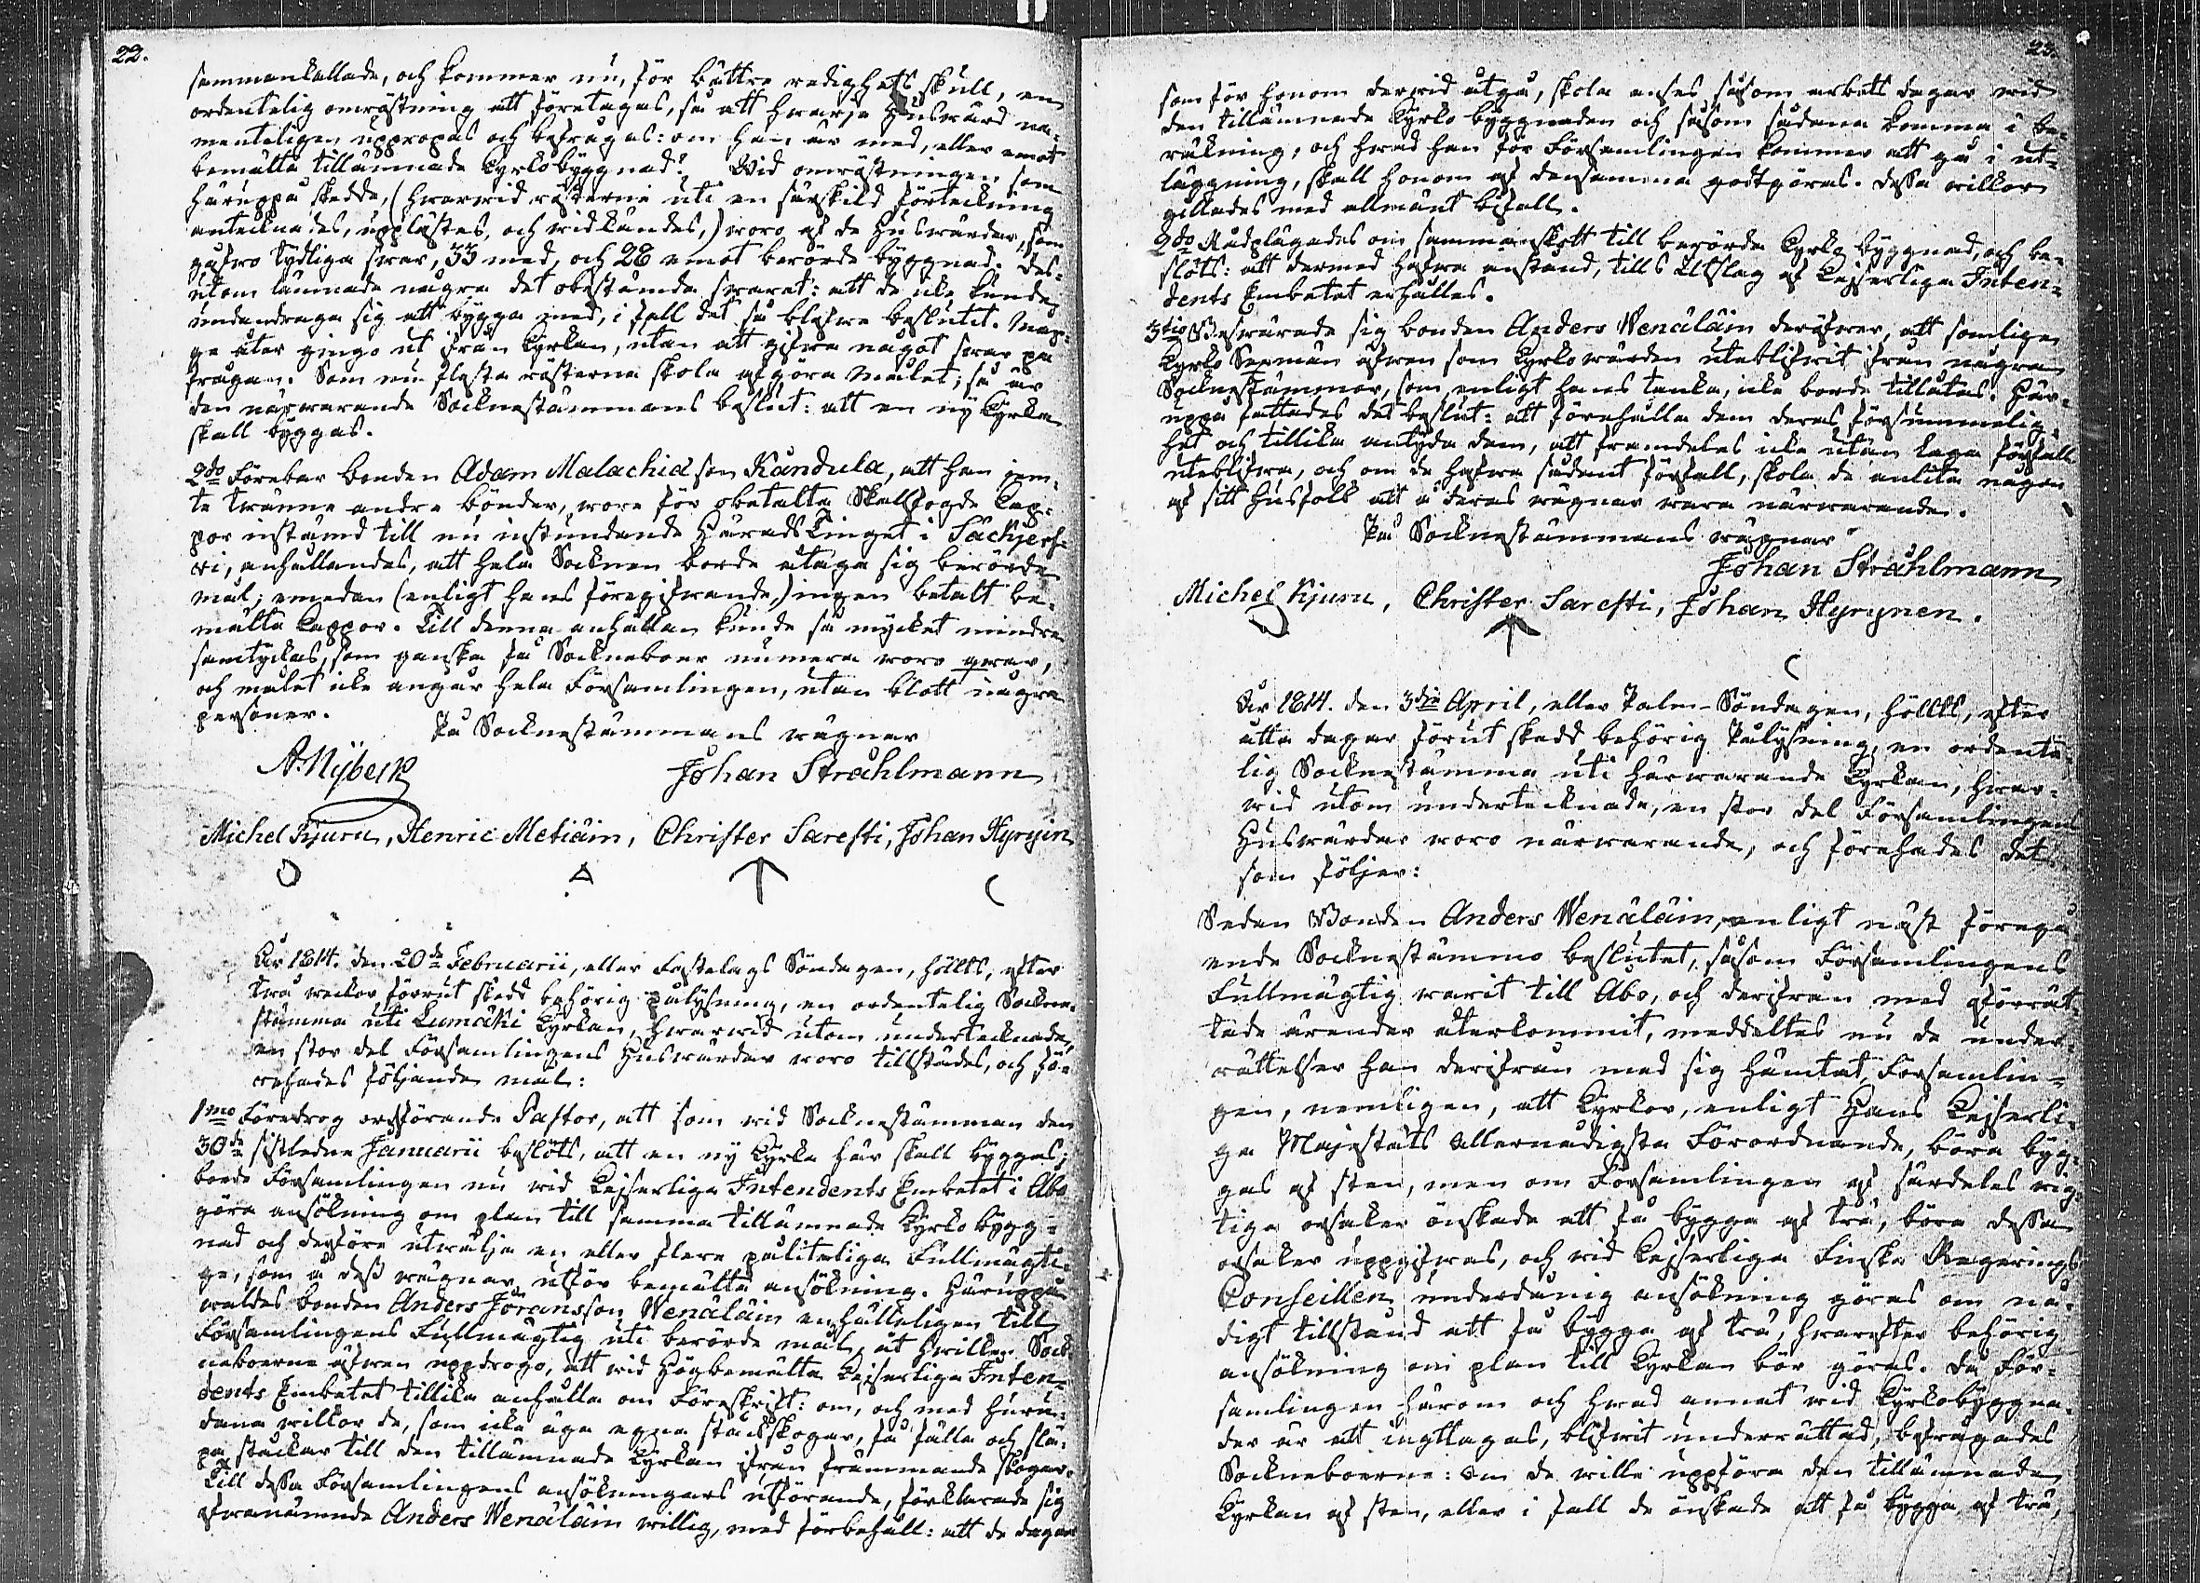 22.
sammankallade, och kommer nu, för bättre redighets skull, en
ordentelig omröstning att företagas, så att hwarje Huswärd na-
menteligen uppropas och befrågas: om han är med, eller emot
bemälta tillämnade Kyrkobyggnad? Wid omröstningen, som
häruppå skedde, (hwarwid rösterne uti en särskild förteckning
antecknades, upplästes, och widkändes,) woro af de Huswärdar, som
gåfwo tydliga swar, 33 med, och 28 emot berörde byggnad. Des-
utom lämnade några det obestämda swaret: att de icke kunde
undandraga sig att bygga med, i fall det så blefwe beslutit. Mån-
ge åter gingo ut ifrån Kyrkan, utan att gifwa något swar på
frågan. Som nu flesta rösterna skola afgöra målet; så är
den närwarande Socknestämmans beslut: att en ny Kyrka
skall byggas.
2do Förebar bonden Adam Malachia son Kandula, att han jem-
te twänne andre bönder, wore för obetalta Skallfogde Kap-
por instämd till nu instundande Häradstinget i Säckjerf-
wi, anhållandes, att hela Socknen borde åtaga sig berörde
mål; emedan (enligt hans föregifwande,) ingen betalt be-
mälta Kappor. Till denna anhållan kunde så mycket mindre
samtyckas, som ganska få Sockneboer numera woro qwar,
och målet icke angår hela Församlingen, utan blott några
personer.
På Socknestämmans wägnar
A. Nybeck Johan Strahlmann
Michel Kjuru, Henric Metiäin, Christer Saresti, Johan Hyryin
År 1814. den 20de Februarii, eller Fastelags Söndagen, hölts, efter
twå weckor förrut skedd behörig pålysning, en ordentelig Sockne-
stämma uti Lumäki Kyrkan, hwarwid utom undertecknade,
en stor del Församlingens Huswärdar woro tillstädes, och fö-
rehades följande mål:
1mo Föredrog ordförande Pastor, att som wid Socknestämman den
30de sistledne Januarii beslöts, att en ny Kyrka här skall byggas;
borde Församlingen nu wid Kejserliga Intendents Embetet i Åbo
göra ansökning om plan till samma tillämnade Kyrkobygg-
nad och derföre utwälja en eller flere pålitelige Fullmägti-
ge, som å dess wägnar utför bemälta ansökning. Häruppå
waldes bonden Anders Jöransson Wenäläin enhälleligen till
Församlingens Fullmägtig uti berörde mål, åt hwilken Sock-
neboerne äfwen uppdrogo, att wid Högbemälta Kejserliga Inten-
dents Embetet tillika anhålla om Föreskrift: om, och med huru-
dana wilkor de, som icke äga egna stockskogar, få fälla och slä-
pa stockar till den tillämnade Kyrkan ifrån främmande skogar.
Till dessa Församlingens ansökningars utförande, förklarade sig
ofwannämnde Anders Wenäläin willig, med förbehåll: att de dagar
23.
som för honom derwid åtgå, skola anses såsom arbets dagar wid
den tillämnade Kyrko byggnaden och såsom sådana komma i be-
räkning, och hwad han för Församlingen kommer att gå i ut-
läggning, skall honom af densamma godtgöras. Dessa wilkor
gillades med allmänt bifall.
2do Rådplägades om sammanskott till berörda Kyrko byggnad, och be-
slöts: att dermed hafwa anstånd, tills Utslag af Kejserliga Inten-
dents Embetet erhålles.
3tio Beswärade sig bonden Anders Wenäläin deröfwer, att somlige
Kyrko Sexmän äfwen som Kyrkowärden uteblifwit ifrån några
Socknestämmor, som enligt hans tanka, icke borde tillåtas. Här-
uppå fattades det beslut: att förehålla dem deras försummelig-
het och tillika antyda dem, att framdeles icke utan laga förfall
uteblifwa, och om de hafwa sådant förfall, skola de anlita någon
af sitt husfolk att å deras wägnar wara närwarande.
På Socknestämmans wägnar
Johan Strahlmann
Michel Kjuru, Christer Saresti, Johan Hyrynen.
År 1814. den 3die April, eller Palm-Söndagen, hölts, efter
åtta dagar förut skedd behörig Pålysning, en ordente-
lig Socknestämma uti härwarande Kyrkan, hwar-
wid utom undertecknade, en stor del Församlingens
Huswärdar woro närwarande, och förehades det
som följer:
Sedan Bonden Anders Wenäläin, enligt näst föregå-
ende Socknestämmo beslutet, såsom Församlingens
Fullmägtig warit till Åbo, och derifrån med oförrät-
tade ärender återkommit, meddeltes nu de under-
rättelser han derifrån med sig hämtat, Församlin-
gen, nemligen, att Kyrkor, enligt Hans Kejserli-
ga Majestäts allernådigsta Förordnande, böra byg-
gas af sten, men om Församlingen af särdeles wig-
tiga orsaker önskade att få bygga af trä, böra dessa
orsaker uppgifwas, och wid Kejserliga Finska Regerings
Conseillen underdånig ansökning göras om nå-
digt tillstånd att få bygga af trä, hwarefter behörig
ansökning om plan till Kyrkan bör göras. Då För-
samlingen härom och hwad annat wid Kyrkobyggna-
der är att iagttagas, blifwit underrättad, befrågades
Sockneboerne: om de wille uppföra den tillämnade
Kyrkan af sten, eller i fall de önskade att få bygga af trä,